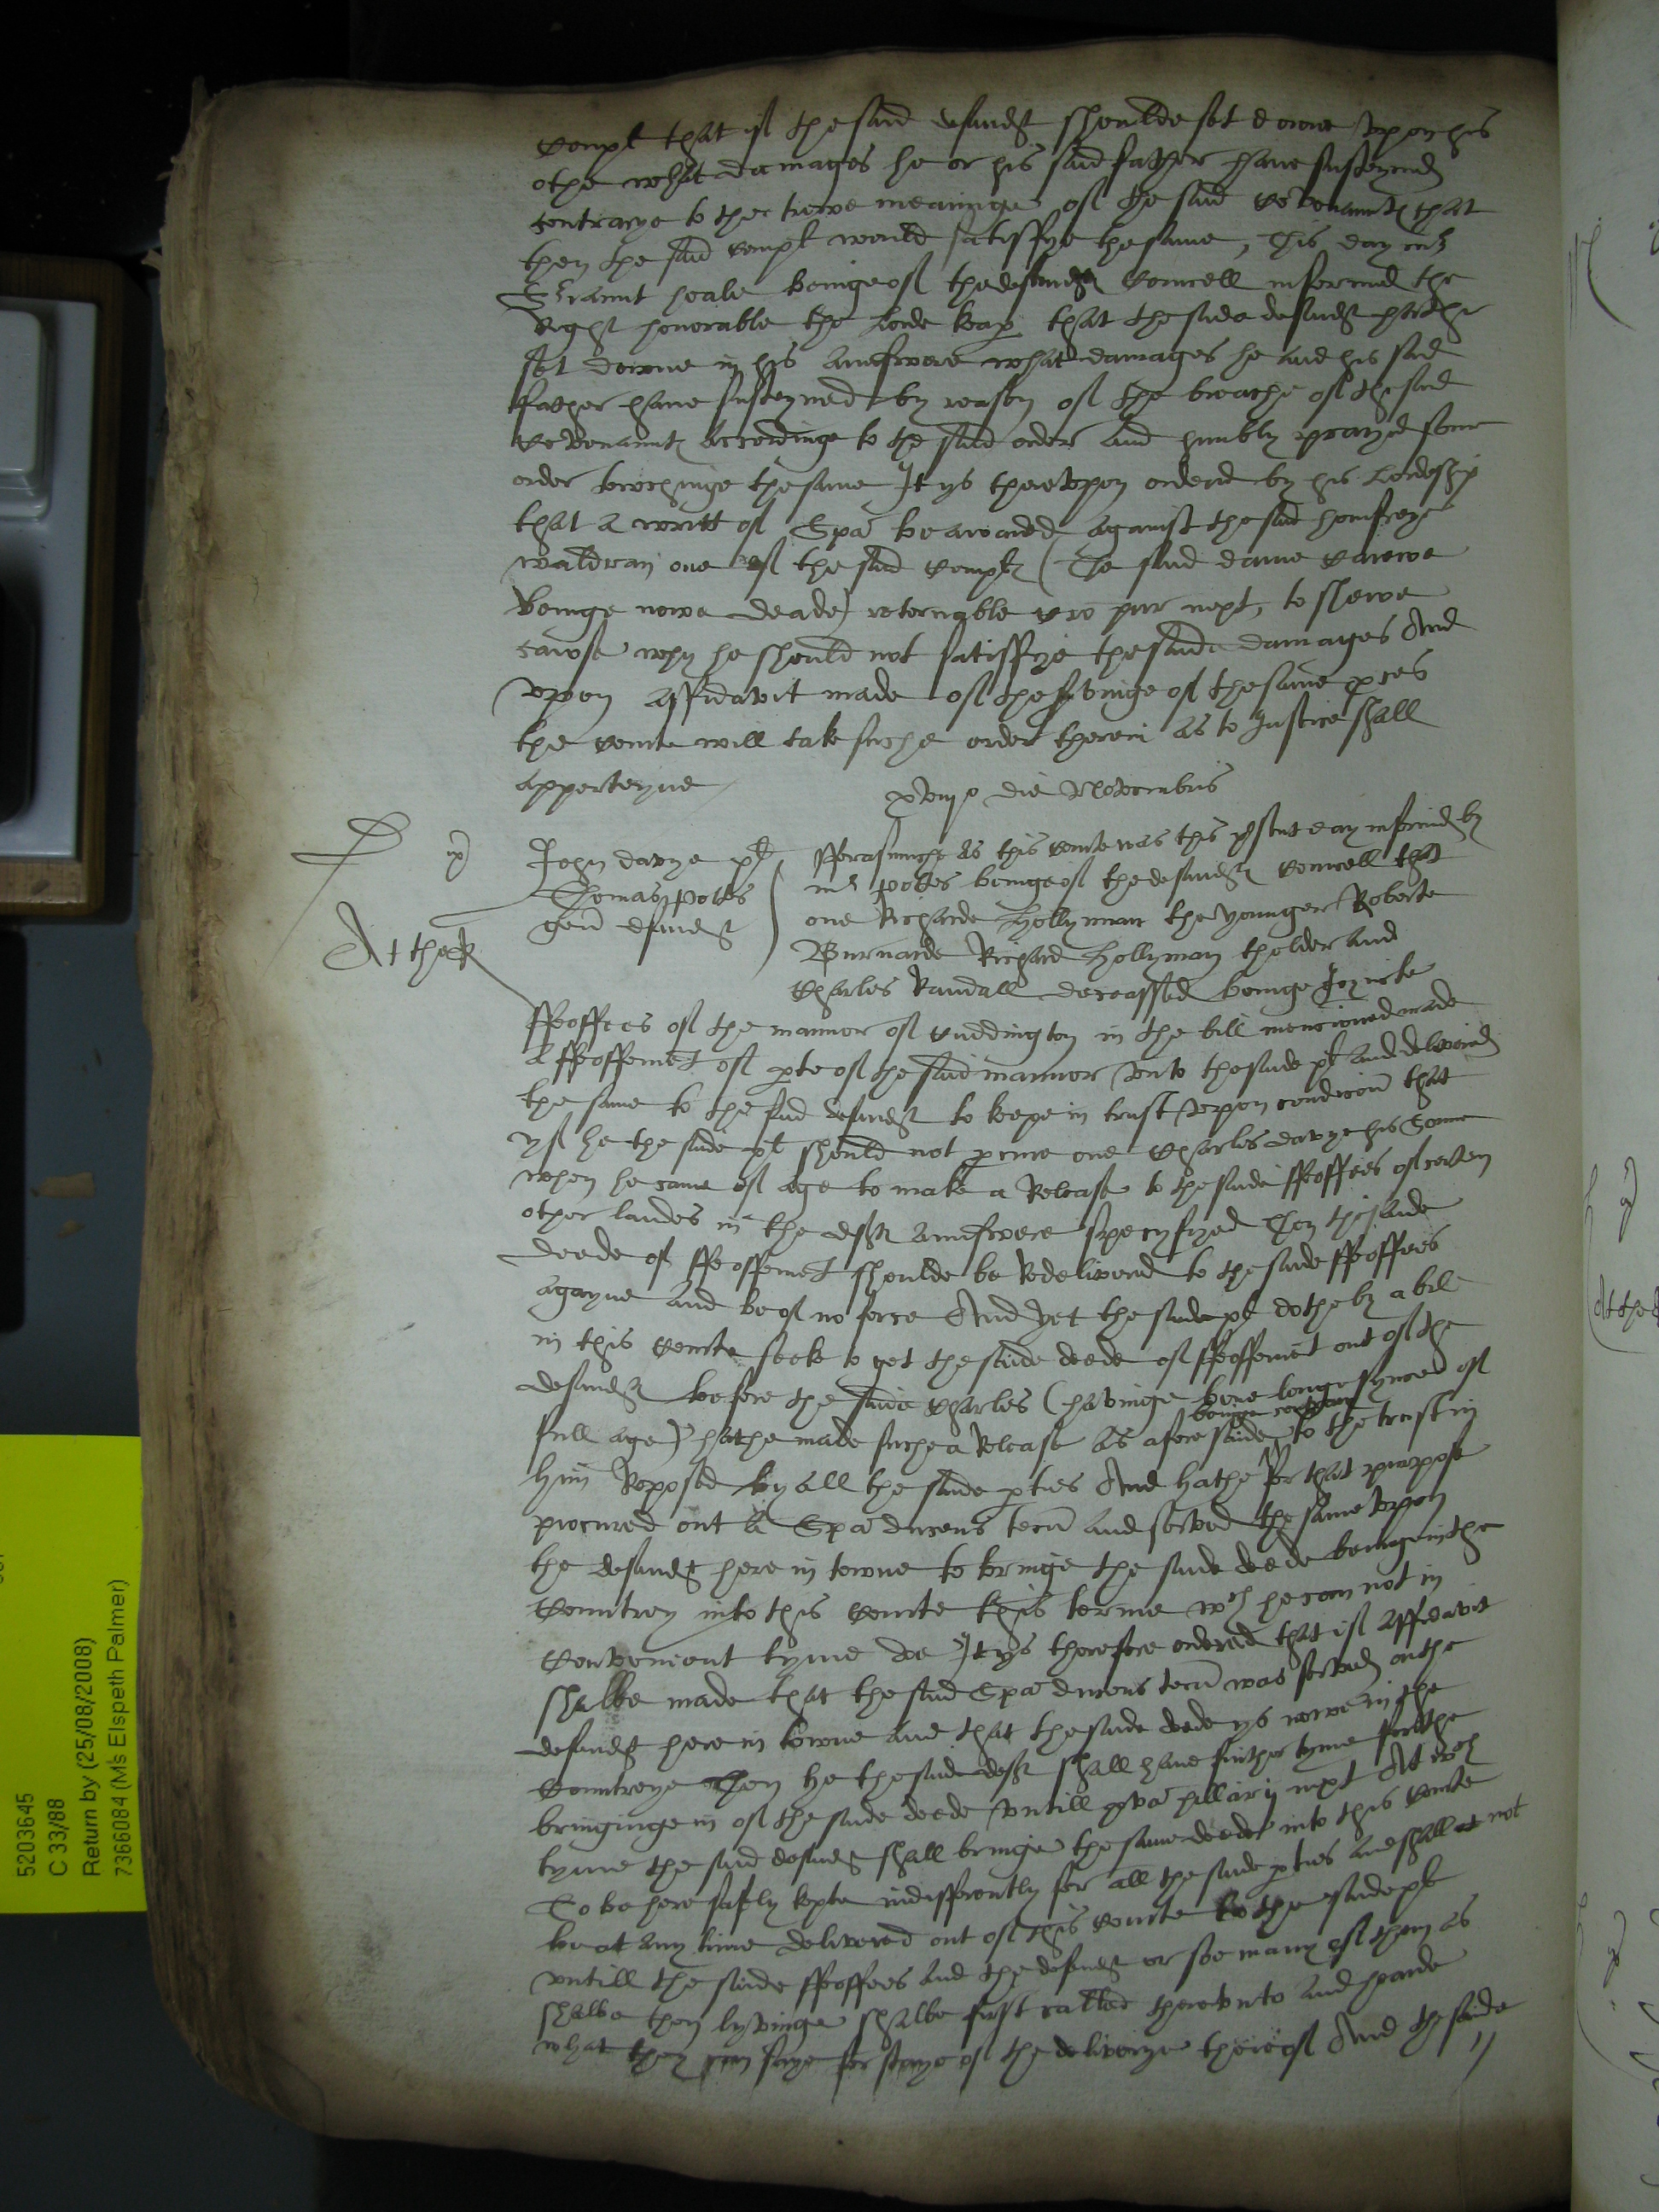 compl that if the said defendt shoulde set downe upon his
othe what damages he or his said father have susteyned
contrarye to the trewe meaninge of the said covenaunt that
then the said compl would satisfye the same, This day mr
Sriaunt heale beinge of the defendt councell informed the
right honorable the Lorde keap that the saide defendt hathe
set downe in his aunswere what damages he and his said
father have susteyned by reason of the breache of the said
covenaunt accordinge to the said order and humbly prayed some
order towchinge the same It ys thereupon ordered by his Lordeship
that a writt of Spa be awarded against the said homfreye
waldran one of the said compl (The said dame
beinge nowe deade) retornable pur next, to shewe
cawse why he should not satisfye the saide damages And
upon affidavit made of the servinge of the same pces
the courte will take suche order therein as to Justice shall
apperteyne
die Novembris
John davye pl
Thomas Pottes
gen defendt
Fforasmuche as this courte was this psent day informed by
mr Pottes beinge of the defendt councell that
one Richarde Hollyman the younger Roberte
Burnarde Richard Hollyman tholder and
Charles Randall deceassed beinge Joyncte
ffeoffees of the mannor of Cuddington in the bill mencioned made
a ffeoffemet of pte of the said mannor unto the saide pl and delivered
the same to the said defendt to keepe in trust upon condicion that
yf he the saide pl should not pcure one Charles davye his Sonne
when he came of age to make a Release to the saide ffeoffees of certen
other landes in the deft aunswere specyfyed Then the saide
deede of ffeoffemet shoulde be Redelivered to the saide ffeoffees
agayne and be of no force And yet the saide pl dothe by a bill
in this courte seeke to get the saide deede of ffeoffemet out of the
defendt before the saide Charles (havinge bene longe synce of
full age) hathe made suche a Release as aforesaide to the trust in
beinge contrary
him Reposed by all the saide pties And hathe for that purpose
procured out a Spa ducens tecu and served the same upon
the defendt here in towne to bringe the saide deede beinge in the
Countrey into this courte this terme wch he can not in
Convenient tyme doe It ys therefore ordered that if affidavit
shalbe made that the said Spa ducens tecu was served on the
defendt here in towne and that the saide deede ys nowe in the
Countreye Then he the saide deft shall have further tyme for the
bringinge in of the saide deede untill hillarij next At wch
tyme the said defendt shall bringe the same deede into this courte
To be here safely kepte indifferently for all the saide pties and shall not
be at any time delivered out of this courte to the saide pl
untill the saide ffeoffees and the defendt or soe many of them as
shalbe then lyvinge shalbe first called thereunto and hearde
what they can saye for staye of the deliverye thereof And the saide
5203645
C 33/88
Return by (25/08/2008)
7366084 (Ms Elspeth Palmer)